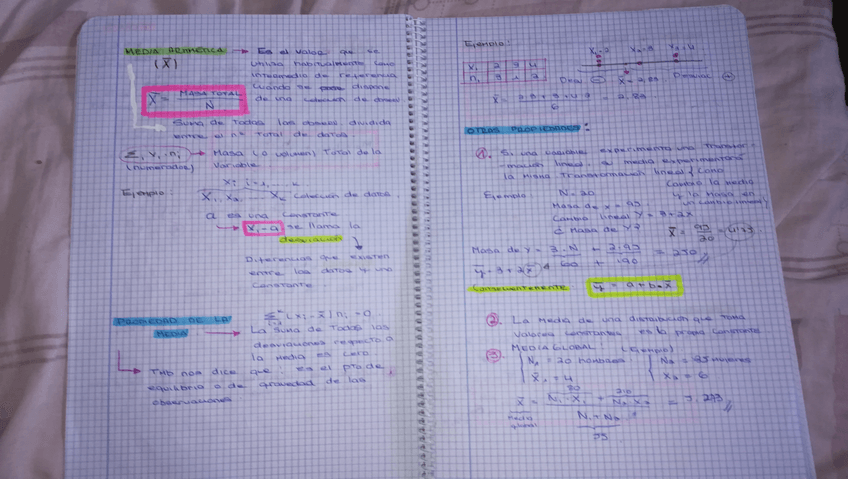 MEDIA ARMÉTICA → Es el valor que se
(X̄) utiliza habitualmente como
intermedio de referencia
cuando se dispone
de una colección de datos
X̄ = MASA TOTAL / N
Suma de todos los datos dividida
entre el nº total de datos.
Σ xᵢ nᵢ → Masa (o volumen) Total de la
(numerador) Variable
Ejemplo: X₁, X₂, Xₖ colección de datos.
a es una constante
Xᵢ - a se llama la
desviación
Diferencias que existen
entre los datos y una
Constante
PROPIEDAD DE LA
MEDIA
Σ (xᵢ - x̄) nᵢ = 0
La suma de todas las
desviaciones respecto a
la media es cero.
Tmb nos dice que: es el pto de
equilibrio o de gravedad de las
observaciones
Ejemplo:
Xᵢ 2 3 4
nᵢ 3 1 2
OTRAS PROPIEDADES:
1. Si una variable experimenta una transfor-
-mación lineal, su media experimentará
la misma transformación lineal
Cambio la media
y la masa en
un cambio lineal
Ejemplo: N = 20
Masa de x = 95
Cambio lineal Y = 3 + 2x
¿ Masa de Y?
Masa de Y = 3 · N + 2 · 95 = 250
60 + 190
ȳ = 3 + 2x̄
Consecuentemente: ȳ = a + b · x̄
2. La media de una distribución que toma
valores constantes es la propia constante
3. MEDIA GLOBAL: (Ejemplo)
N₁ = 20 hombres
X̄₁ = 4
N₂ = 35 mujeres
X̄₂ = 6
X̄ = N₁ · X̄₁ + N₂ · X̄₂ / N₁ + N₂
Media
global
55